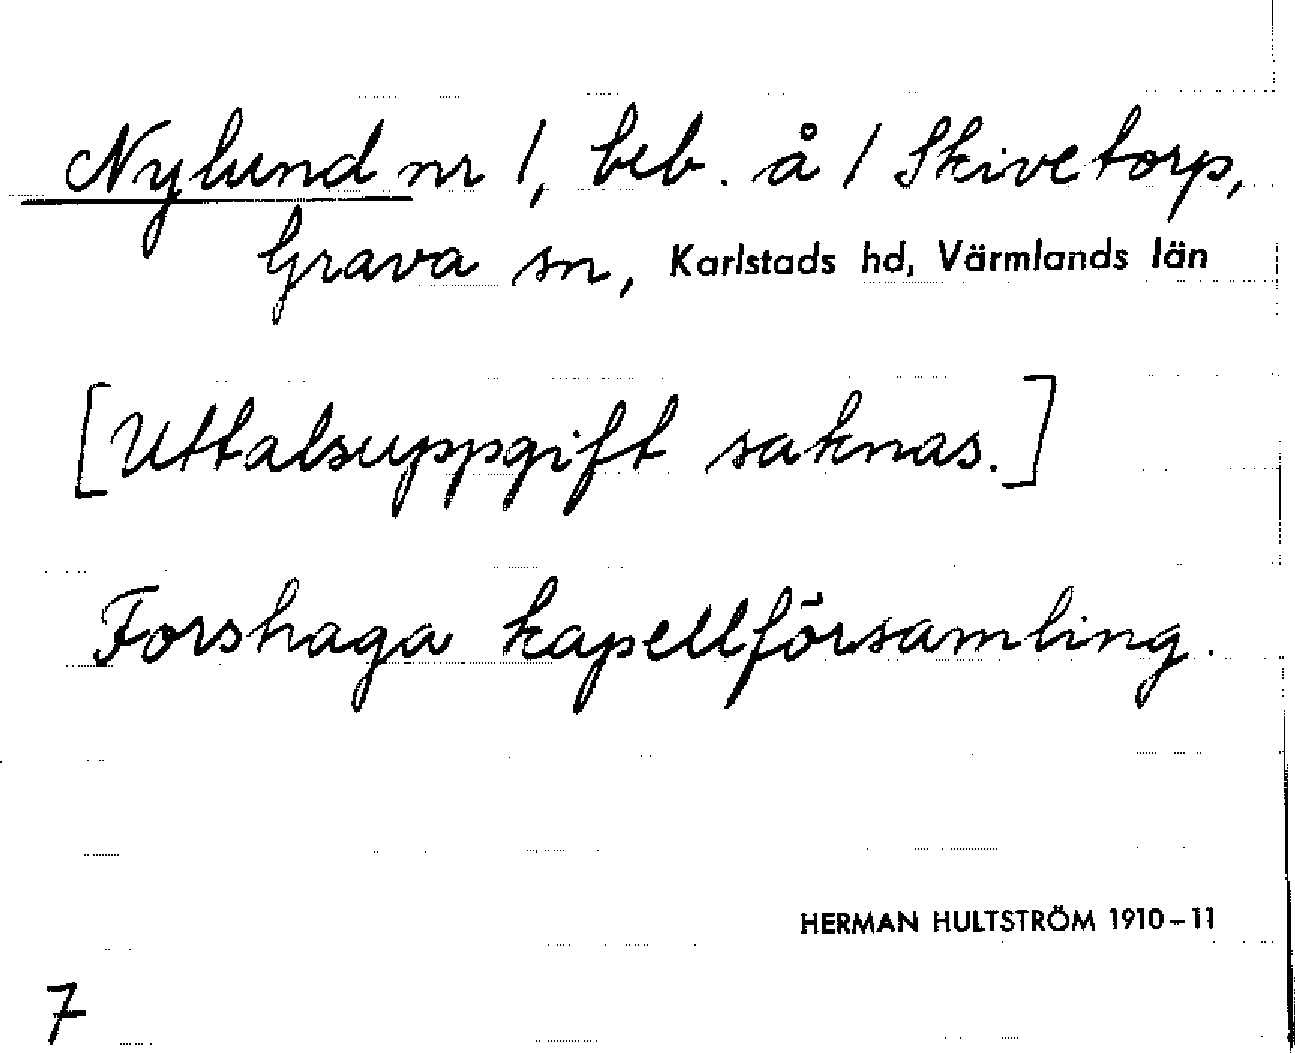 Nylund nr 1, beb. å 1 Skivetorp,
Grava sn, Karlstads hd, Värmlands län
[Uttalsuppgift saknas.]
Forshaga kapellförsamling.
HERMAN HULTSTRÖM 1910-11
7